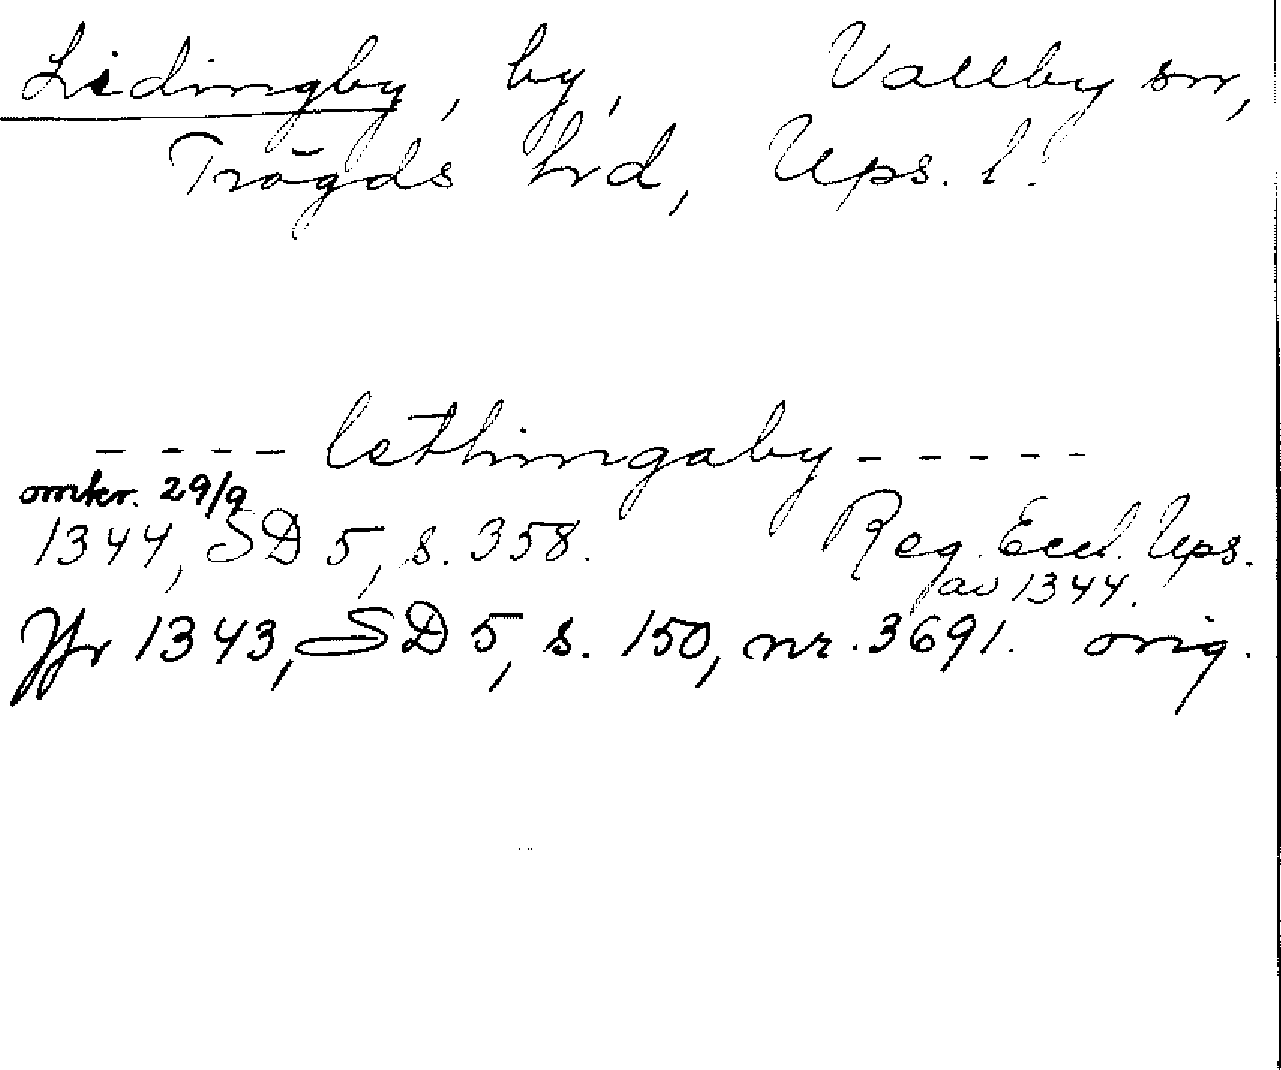 Lidingby, by, Vallby sn,
Trögds hrd, Ups. l.
- - - - lethingaby - - - - -
omkr. 29/9
1344, SD 5, s. 358. Reg. Eccl. Ups.
av 1344.
Jfr 1343, SD 5, s. 150, nr. 3691. orig.